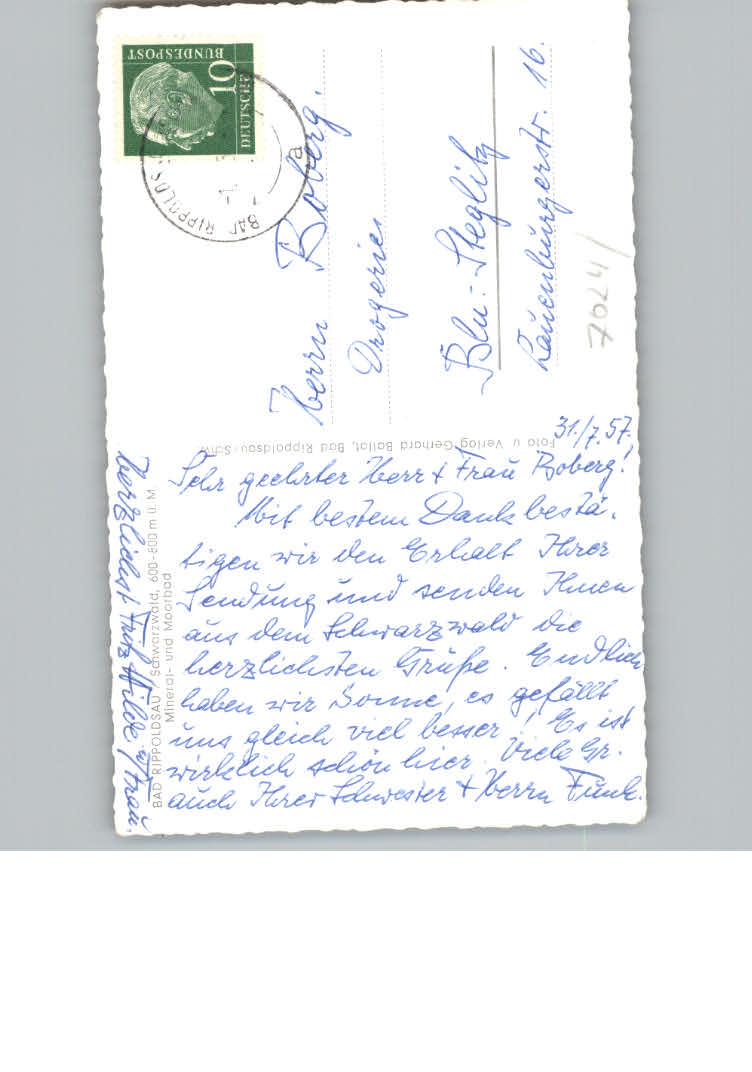 31./7.57.
Sehr geehrter Herr + Frau Boberg!
Mit bestem Dank bestä-
tigen wir den Erhalt Ihrer
Sendung und senden Ihnen
aus dem Schwarzwald die
herzlichsten Grüße. Endlich
haben wir Sonne, es gefällt
uns gleich viel besser! Es ist
wirklich schön hier. Viele Gr.
auch Ihrer Schwester + Herrn Funk.
herzlichst Fritz Hilde u/ Frau.
BAD RIPPOLDSAU / Schwarzwald, 600-800 m ü. M.
Mineral- und Moorbad
Foto u. Verlag Gerhard Ballat, Bad Rippoldsau/Schw.
Herrn Boberg.
Drogerie
Bln.-Steglitz
Lauenburgerstr. 16.
7024/
DEUTSCHE
BUNDESPOST
10
BAD RIPPOLDS
a